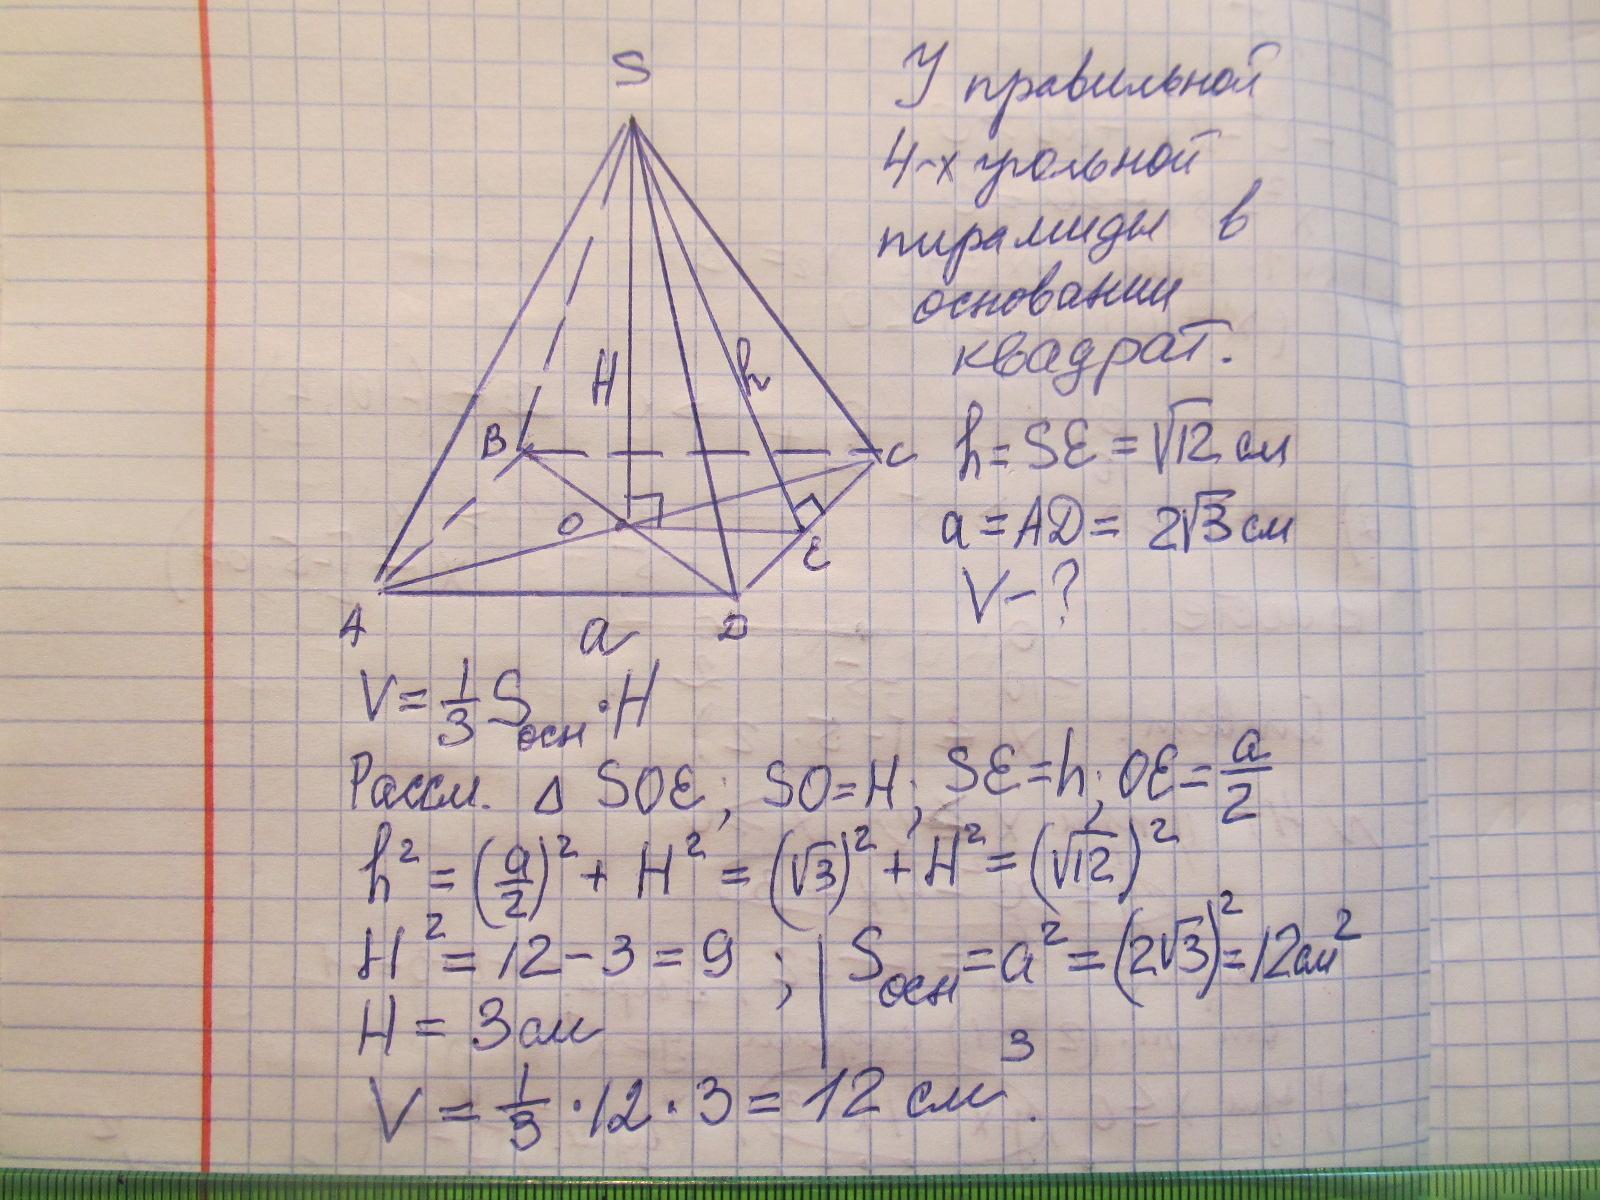 S
У правильной
4-х угольной
пирамиды в
основании
квадрат.
H
h
B
C
h = SE = √12 см
O
E
a = AD = 2√3 см
A
a
D
V - ?
V = 1/3 Sосн · H
Рассм. Δ SOE; SO = H; SE = h; OE = a/2
h² = (a/2)² + H² = (√3)² + H² = (√12)²
H² = 12 - 3 = 9 ; | Sосн = a² = (2√3)² = 12 см²
H = 3 см
V = 1/3 · 12 · 3 = 12 см³.